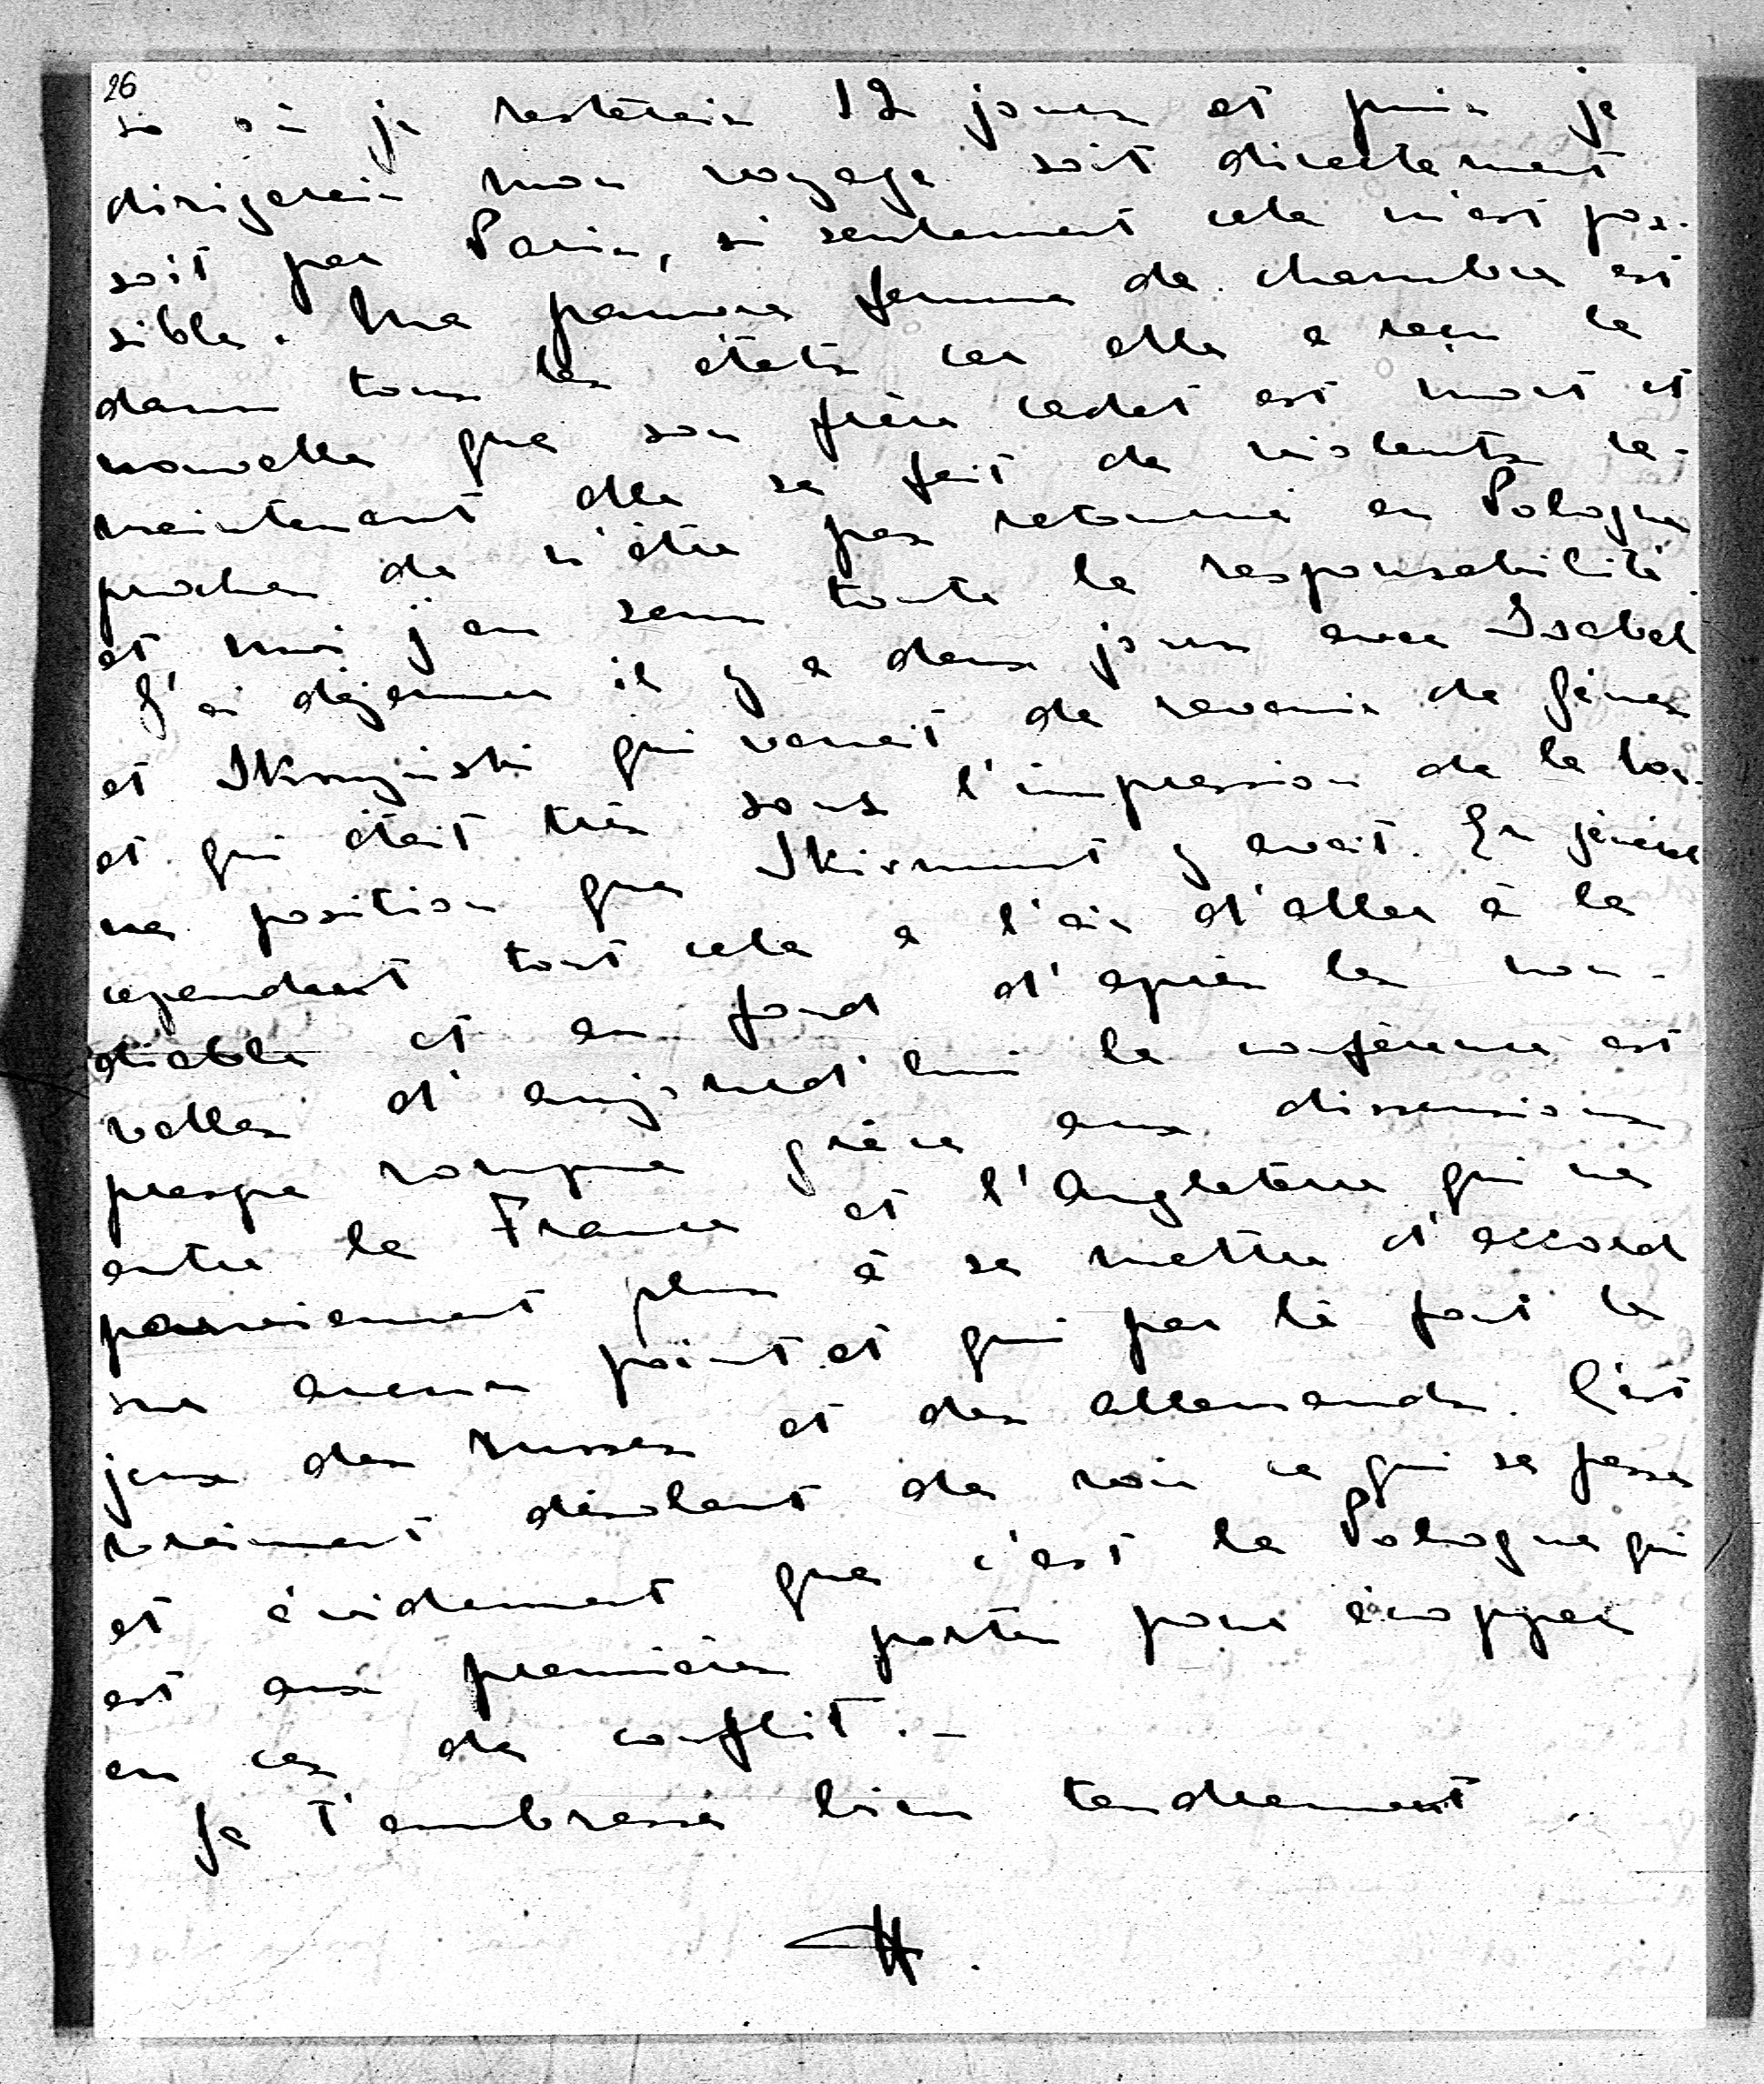 26
so où je resterais 12 jours et puis je
dirigerais mon voyage soit directement
soit par Paris, si seulement cela m'est pos-
sible. Ma pauvre femme de chambre est
dans tous les états car elle a reçu la
nouvelle que son frère cadet est mort et
maintenant elle se fait de violents re-
proches de n'être pas retournée en Pologne
et moi j'en sens toute la responsabilité.
J'ai déjeuner il y a deux jours avec Isabel
et Skrzyński qui venait de revenir de Gênes
et qui était très sous l'impression de la bon-
ne position que Skirmunt y avait. En général
cependant tout cela a l'air d'aller à la
diable et en fond d'après les nou-
velles d'aujourd'hui la conférence est
presque rompue grâce aux dissensions
entre la France et l'Angleterre qui ne
parviennent plus à se mettre d'accord
sur aucun point et qui par là font le
jeux des Russes et des allemands. C'est
vraiment désolant de voir ce qui se passe
et évidement que c'est la Pologne qui
est aux premières portes pour écopper
en cas de conflit. –
Je t'embrasse bien tendrement.